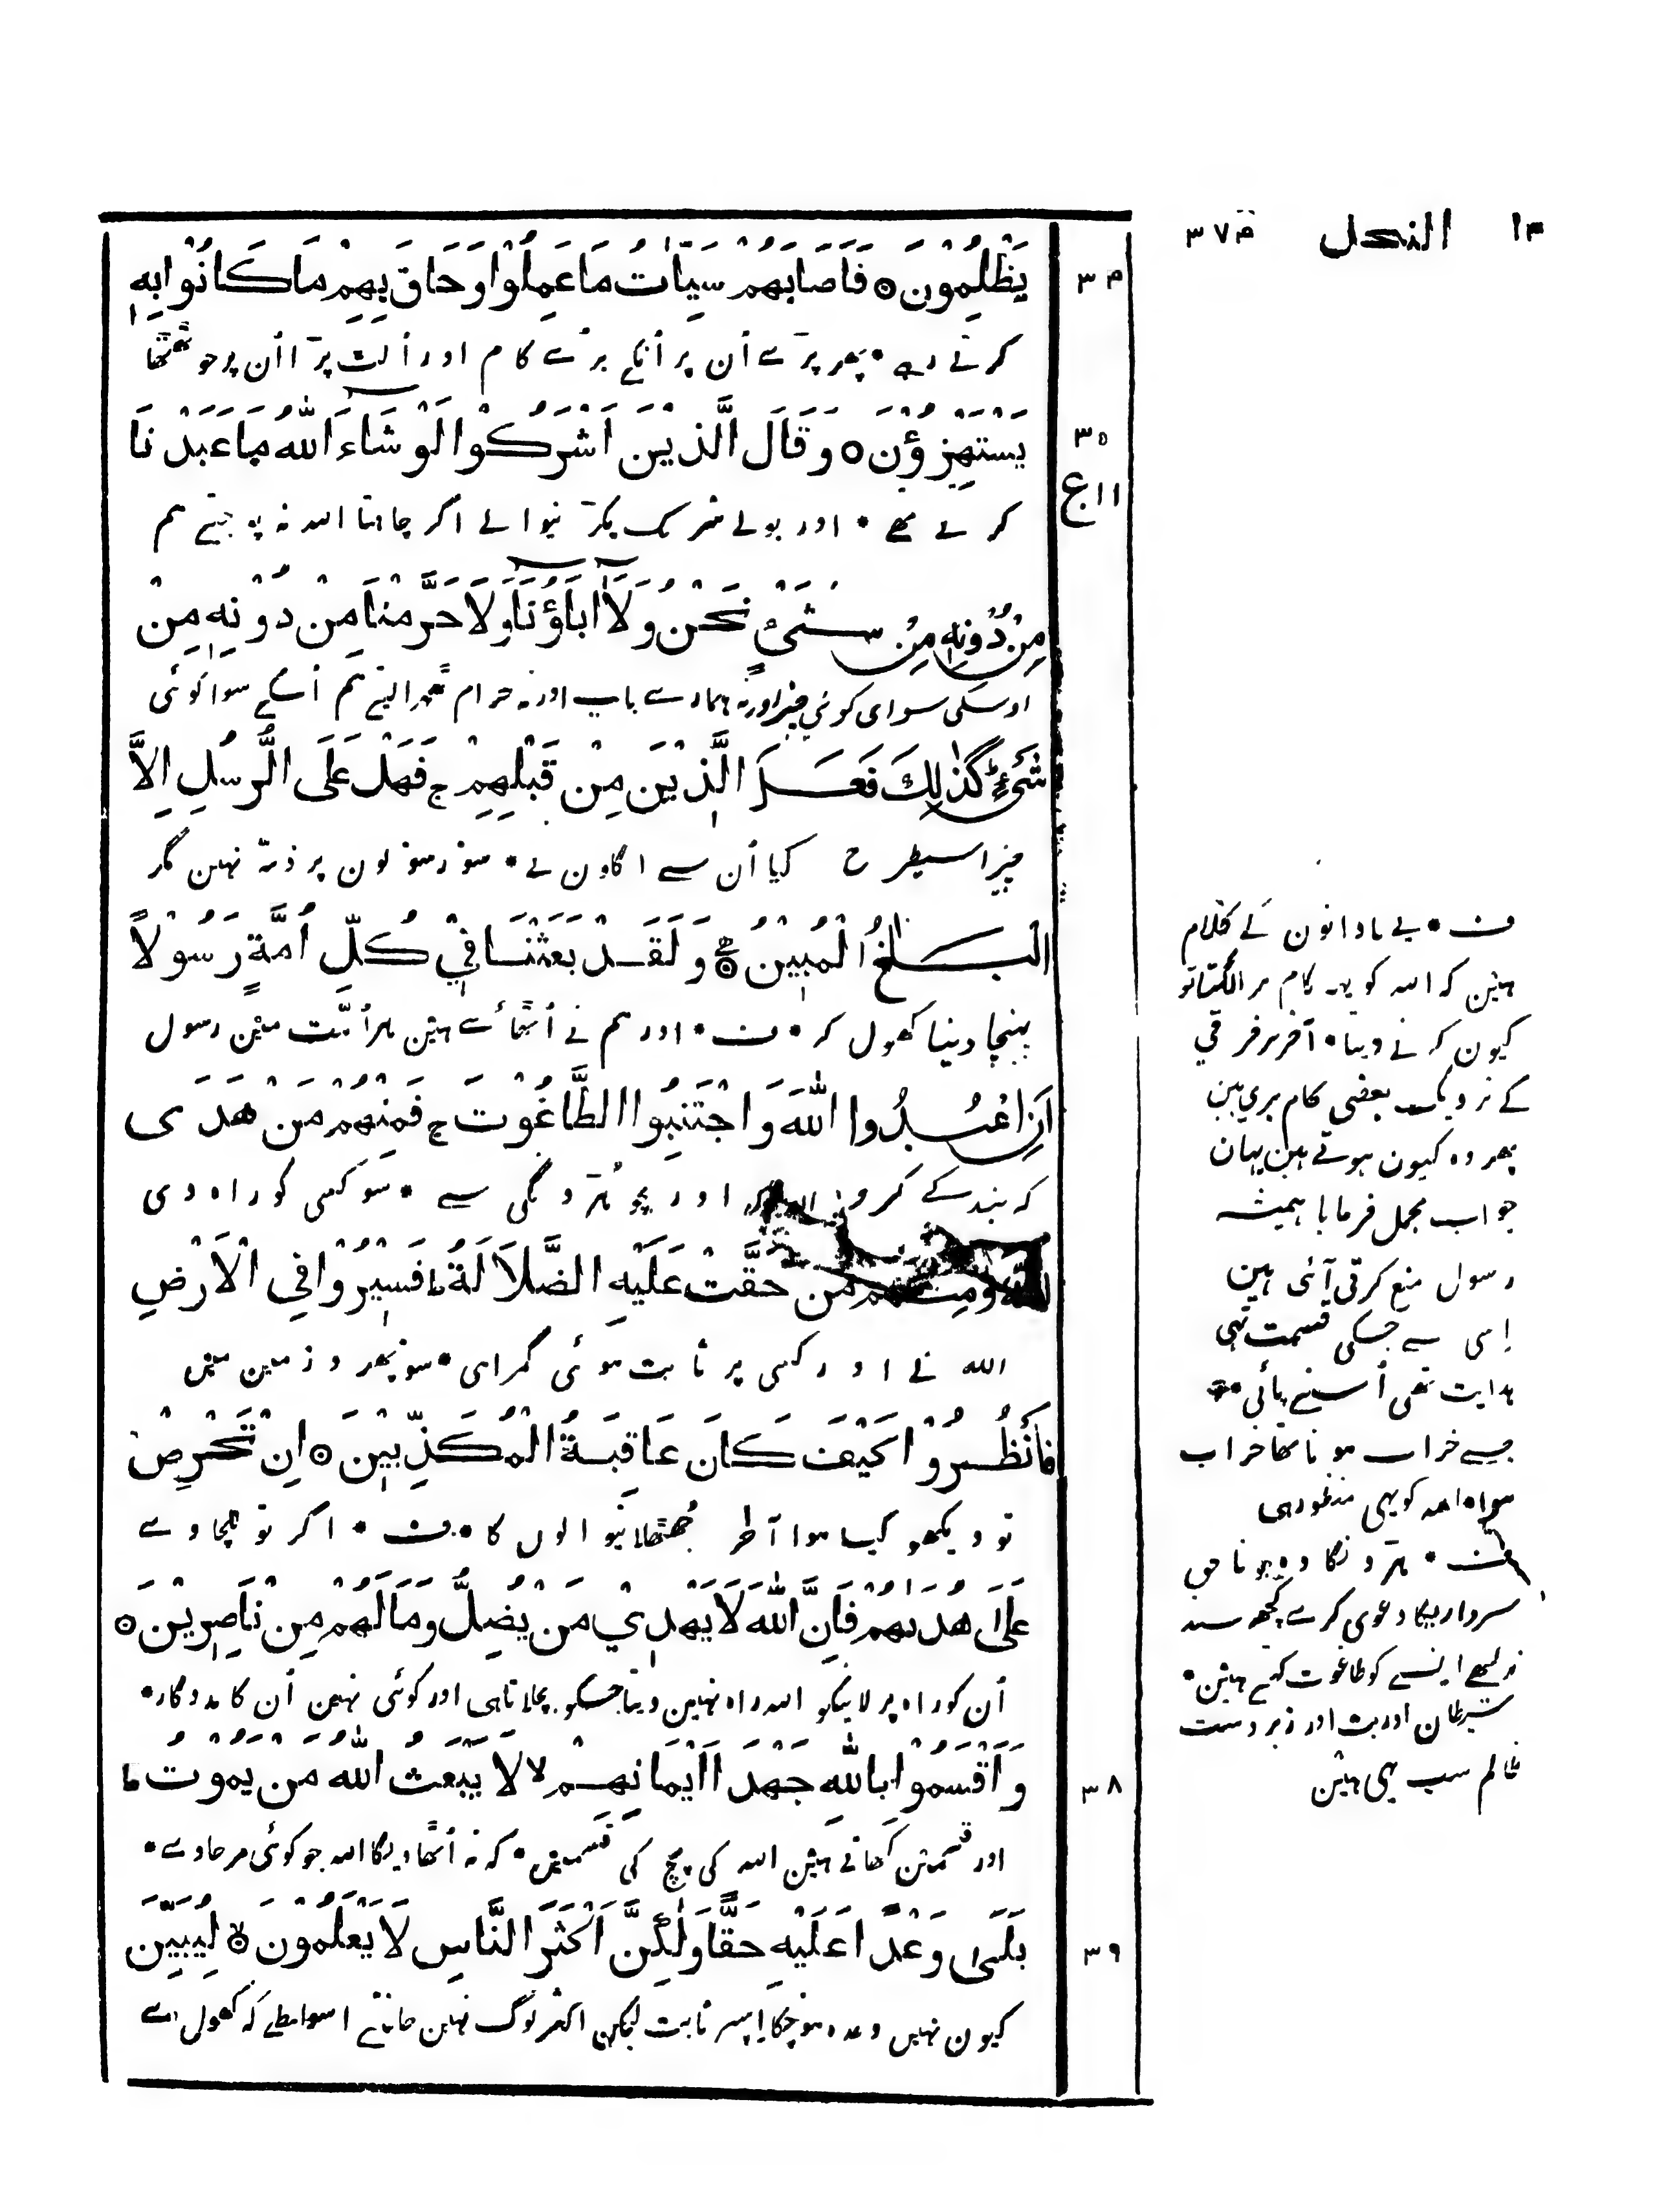 ١٣ النحل ٣٧٤
٣٤ يَظْلِمُوْنَ ۞ فَاَصَابَهُمْ سَيِّاٰتُ مَا عَمِلُوْا وَحَاقَ بِهِمْ مَا كَانُوْا بِهٖ
کرتے رہے • پھر پڑے اُن پر اُنکے برے کام اور اُلٹ پڑا اُن پر جو ٹھٹھا
٣٥ يَسْتَهْزِؤُنَ ۞ وَقَالَ الَّذِيْنَ اَشْرَكُوْا لَوْ شَاءَ اللّٰهُ مَا عَبَدْنَا
ع ١١
کرتے تھے • اور بولے شرک پکڑنیوالے اگر چاہتا اللہ نہ پوجتے ہم
مِنْ دُوْنِهٖ مِنْ شَيْءٍ نَحْنُ وَلَا اٰبَاؤُنَا وَلَا حَرَّمْنَا مِنْ دُوْنِهٖ مِنْ
اوسکی سوای کوئی چیز اور نہ ہمارے باپ اور نہ حرام ٹھہرا لیتے ہم اُسکے سوا کوئی
شَيْءٍ ؕ كَذٰلِكَ فَعَلَ الَّذِيْنَ مِنْ قَبْلِهِمْ ج فَهَلْ عَلَى الرُّسُلِ اِلَّا
چیز اسیطرح کیا اُن سے اگلوں نے • سو رسولوں پر ذمّہ نہیں مگر
الْبَلٰغُ الْمُبِيْنُ ۞ وَلَقَدْ بَعَثْنَا فِيْ كُلِّ اُمَّةٍ رَسُوْلًا
پہنچا دینا کھول کر • ف • اور ہم نے اُٹھائے ہیں ہر اُمّت میں رسول
اَنِ اعْبُدُوا اللّٰهَ وَاجْتَنِبُوا الطَّاغُوْتَ ج فَمِنْهُمْ مَنْ هَدَى
کہ بندگے کرو اللہ کی اور بچو ہڑدنگی سے • سو کسی کو راہ دی
اللّٰهُ وَمِنْهُمْ مَنْ حَقَّتْ عَلَيْهِ الضَّلَالَةُ ط فَسِيْرُوْا فِي الْاَرْضِ
اللہ نے اور کسی پر ثابت ہوئی گمراہی • سو پھرو زمین میں
فَانْظُرُوْا كَيْفَ كَانَ عَاقِبَةُ الْمُكَذِّبِيْنَ ۞ اِنْ تَحْرِصْ
تو دیکھو کیسا ہوا آخر جُھٹھلانیوالوں کا • ف • اگر تو للچاوے
عَلٰى هُدٰىهُمْ فَاِنَّ اللّٰهَ لَا يَهْدِيْ مَنْ يُضِلُّ وَمَا لَهُمْ مِنْ نَاصِرِيْنَ ۞
اُن کو راہ پر لانیکو اللہ راہ نہیں دیتا جسکو بچلاتا ہی اور کوئی نہیں اُن کا مددگار •
٣٨ وَاَقْسَمُوْا بِاللّٰهِ جَهْدَ اَيْمَانِهِمْ لا لَا يَبْعَثُ اللّٰهُ مَنْ يَمُوْتُ ط
اور قسمیں کھاتے ہیں اللہ کی پچ کی قسمیں • کہ نہ اُٹھاویگا اللہ جو کوئی مر جاوے •
٣٩ بَلٰى وَعْدًا عَلَيْهِ حَقًّا وَلٰكِنَّ اَكْثَرَ النَّاسِ لَا يَعْلَمُوْنَ ۞ لِيُبَيِّنَ
کیوں نہیں وعدہ ہوچکا اِسپر ثابت لیکن اکثر لوگ نہیں جانتے اسواسطے کہ کھول دے
ف • یے نادانوں کے کلام
ہیں کہ اللہ کو یہہ کام برا لگتا تو
کیوں کرنے دیتا • آخر ہر فرقی
کے نزدیک بعضی کام بری ہیں
پھر وہ کیوں ہوتے ہیں یہاں
جواب مجمل فرمایا ہمیشہ
رسول منع کرتی آئی ہیں
اِسی سے جسکی قسمت تہی
ہدایت تھی اُسنے پائی •
جسے خراب ہونا تھا خراب
ہوا اللہ کو یہی منظور ہی
ف • ہڑدنگا وہ جو ناحق
سرداریکا دعوی کرے کچھ سند
نرکھے ایسے کو طاغوت کہتے ہیں •
شیطان اور بت اور زبردست
ظالم سب یہی ہیں